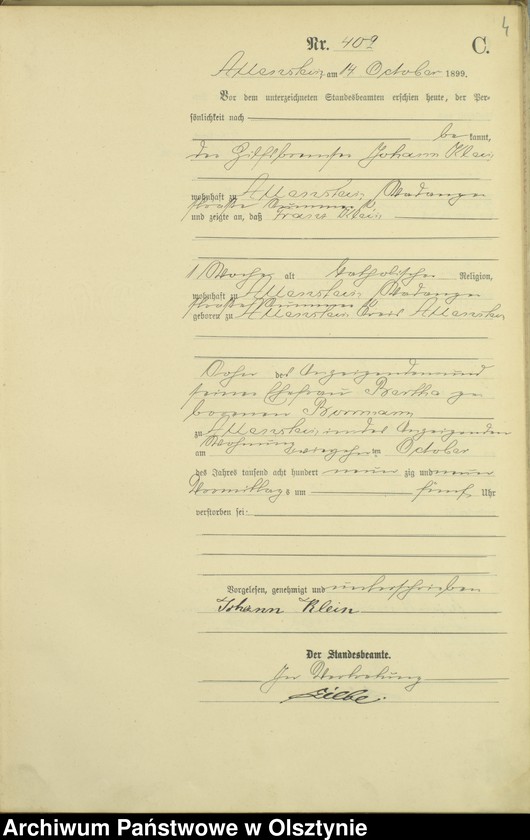 4
Nr. 409 C.
Allenstein am 14 October 1899.
Vor dem unterzeichneten Standesbeamten erschien heute, der Per-
sönlichkeit nach
be kannt,
der Hilfsbremser Johann Klein
wohnhaft zu Allenstein, Wadanger
straße Nummer
und zeigte an, daß Franz Klein
1 Woche alt katholischer Religion,
wohnhaft zu Allenstein, Wadanger
straße Nummer
geboren zu Allenstein Kreis Allenstein
Sohn des Anzeigenden und
seiner Ehefrau Bertha ge
borenen Bormann
zu Allenstein, in des Anzeigenden
Wohnung
am vierzehn ten October
des Jahres tausend acht hundert neun zig und neun
Vormittag s um fünf Uhr
verstorben sei:
Vorgelesen, genehmigt und unterschrieben
Johann Klein
Der Standesbeamte.
In Vertretung
Archiwum Państwowe w Olsztynie